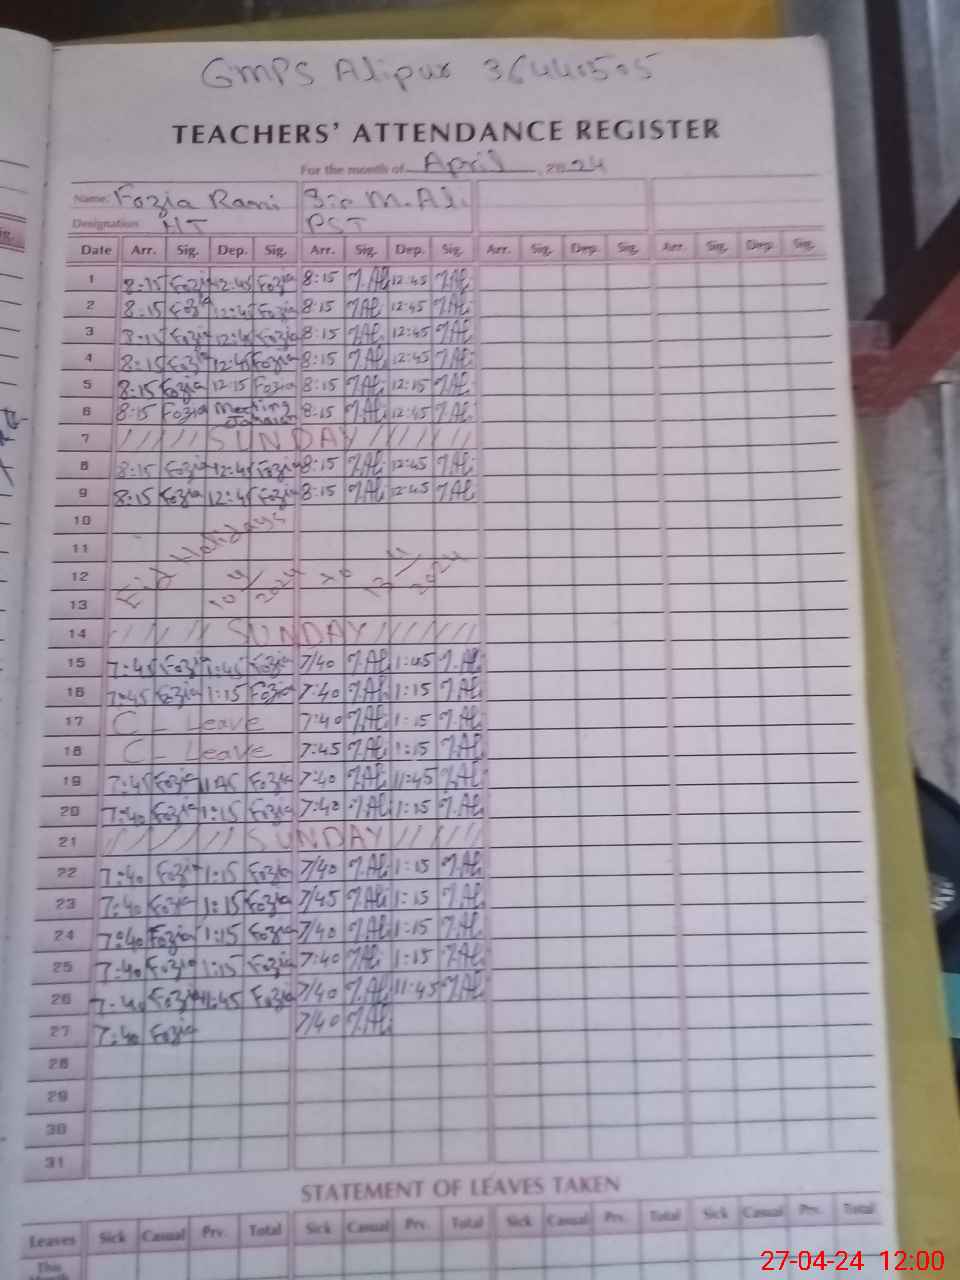 GMPS Alipur 36440505
TEACHERS' ATTENDANCE REGISTER
For the month of April, 2024
Name: Fozia Rani M. Ali
Designation HT PST
Date Arr. Sig. Dep. Sig. Arr. Sig. Dep. Sig. Arr. Sig. Dep. Sig. Arr. Sig. Dep. Sig.
1 8:15 Fozia 12:45 Fozia 8:15 M.Ali 12:45 M.Ali
2 8:15 Fozia 12:45 Fozia 8:15 M.Ali 12:45 M.Ali
3 8:15 Fozia 12:45 Fozia 8:15 M.Ali 12:45 M.Ali
4 8:15 Fozia 12:45 Fozia 8:15 M.Ali 12:45 M.Ali
5 8:15 Fozia 12:15 Fozia 8:15 M.Ali 12:15 M.Ali
6 8:15 Fozia Meeting 8:15 M.Ali 12:45 M.Ali
7 SUNDAY
8 8:15 Fozia 12:45 Fozia 8:15 M.Ali 12:45 M.Ali
9 8:15 Fozia 12:45 Fozia 8:15 M.Ali 12:45 M.Ali
10
11
12 Eid Holidays 10/4/2024 to 13/4/2024
13
14 SUNDAY
15 7:45 Fozia 1:45 Fozia 7/40 M.Ali 1:45 M.Ali
16 7:45 Fozia 1:15 Fozia 7:40 M.Ali 1:15 M.Ali
17 C_ Leave 7:40 M.Ali 1:15 M.Ali
18 C_ Leave 7:45 M.Ali 1:15 M.Ali
19 7:45 Fozia 11:45 Fozia 7:40 M.Ali 11:45 M.Ali
20 7:40 Fozia 1:15 Fozia 7:40 M.Ali 1:15 M.Ali
21 SUNDAY
22 7:40 Fozia 1:15 Fozia 7/40 M.Ali 1:15 M.Ali
23 7:40 Fozia 1:15 Fozia 7/45 M.Ali 1:15 M.Ali
24 7:40 Fozia 1:15 Fozia 7/40 M.Ali 1:15 M.Ali
25 7:40 Fozia 1:15 Fozia 7:40 M.Ali 1:15 M.Ali
26 7:40 Fozia 11:45 Fozia 7/40 M.Ali 11:45 M.Ali
27 7:40 Fozia 7/40 M.Ali
28
29
30
31
STATEMENT OF LEAVES TAKEN
Leaves Sick Casual Prv. Total Sick Casual Prv. Total Sick Casual Prv. Total Sick Casual Prv. Total
This
Month
27-04-24 12:00